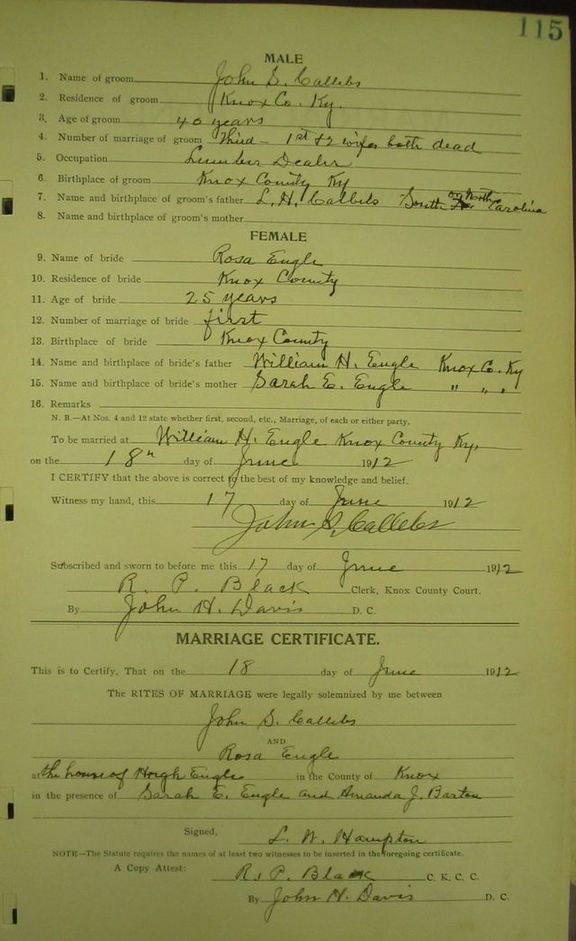 115
MALE
1. Name of groom John S. Callebs
2. Residence of groom Knox Co. Ky.
3. Age of groom 40 years
4. Number of marriage of groom Third - 1st & 2 wifes both dead
5. Occupation Lumber Dealer
6. Birthplace of groom Knox County Ky
7. Name and birthplace of groom's father L. H. Callebs South or North Carolina
8. Name and birthplace of groom's mother
FEMALE
9. Name of bride Rosa Engle
10. Residence of bride Knox County
11. Age of bride 25 years
12. Number of marriage of bride first
13. Birthplace of bride Knox County
14. Name and birthplace of bride's father William H. Engle Knox Co. Ky
15. Name and birthplace of bride's mother Sarah E. Engle " " "
16. Remarks
N. B.—At Nos. 4 and 12 state whether first, second, etc., Marriage, of each or either party,
To be married at William H. Engle Knox County Ky.
on the 18th day of June 1912
I CERTIFY that the above is correct to the best of my knowledge and belief.
Witness my hand, this 17 day of June 1912
John S. Callebs
Subscribed and sworn to before me this 17 day of June 1912
R. P. Black Clerk, Knox County Court.
By John H. Davis D. C.
MARRIAGE CERTIFICATE.
This is to Certify, That on the 18 day of June 1912
The RITES OF MARRIAGE were legally solemnized by me between
John S. Callebs
AND
Rosa Engle
at the house of Hough Engle in the County of Knox
in the presence of Sarah E. Engle and Amanda J. Barton
Signed, L. W. Hampton
NOTE—The Statute requires the names of at least two witnesses to be inserted in the foregoing certificate.
A Copy Attest: R. P. Black C. K. C. C.
By John H. Davis D. C.